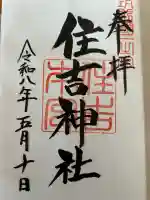 奉拝
住吉神社
令和八年五月十日